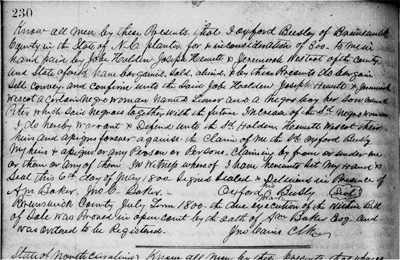 230
Know all men by these Presents, that I Oxford Beesly of Brunswick
County in the State of N.C. planter for & in consideration of 600. to me in
hand paid by John Holden Joseph Hewett & Jeremiah Wescot of the county
and State afores'd have bargained, Sold, aliend, & by these Presents do bargain
Sell convey and Confirm unto the Said Job Holden Joseph Hewett & Jeremiah
Wescot a Certain Negro woman Named Zenor and a Negro boy her Son named
Peter which Said Negroes together with the future Increase of the Sd. Negro woman
I do hereby warrant & Defend unto the Sd. Holden, Hewett Wescot their
Heirs and assigns forever against the Claim of me the Sd. Oxford Beesly
My heirs & assigns or any Person or Persons claiming by from or under me
or them or any of them. In Witness whereof I have hereunto Set my hand &
Seal this 6th day of May 1800. Signed Sealed & Delivered in Presence of
Wm Baker. Jno. C. Baker. Oxford his mark Beesly Seal
Brunswick County July Term 1800. the due execution of the within Bill
of Sale was Proved in open court by the oath of Wm Baker Esq. and
was ordered to be Registered. Jno Cains Clk
State of North Carolina Know all men by these presents that whereas